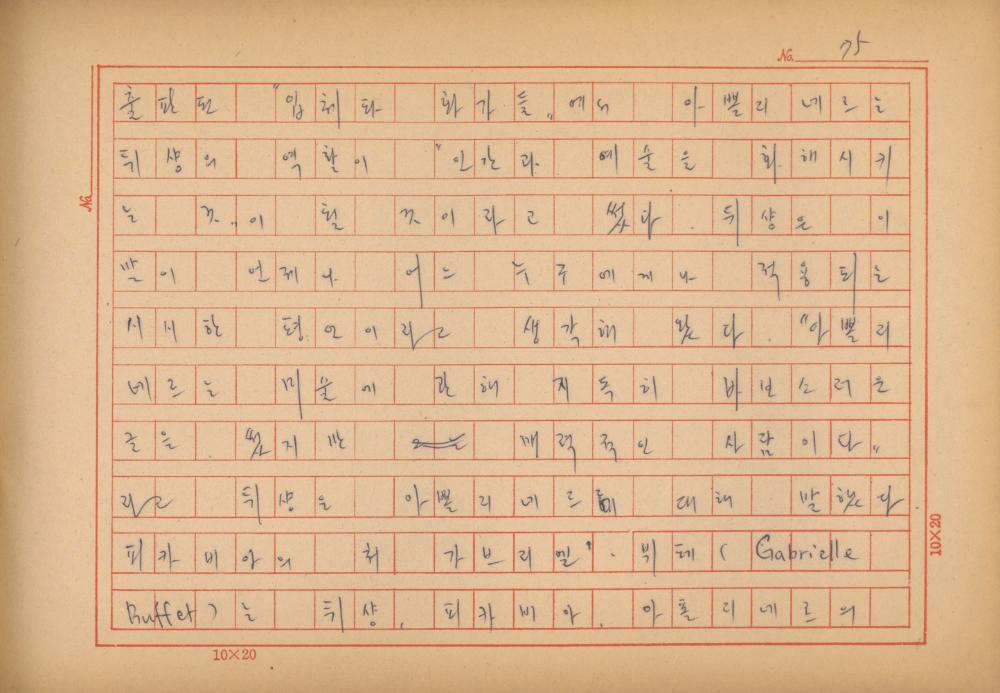 No. 75
출판된 "입체파 화가들"에서 아뽈리네르는
뒤샹의 역할이 "인간과 예술을 화해시키
는 것"이 될 것이라고 썼다. 뒤샹은 이
말이 언제나 어느 누구에게나 적용되는
시시한 평언이라고 생각해 왔다. "아뽈리
네르는 미술에 관해 지독히 바보소러운
글을 썼지만 매력적인 사람이다"
라고 뒤샹은 아뽈리네르에 대해 말했다
피카비아의 처 가브리엘·뷔페(Gabrielle
Buffet)는 뒤샹, 피카비아, 아폴리네르의
No.
10×20
10×20